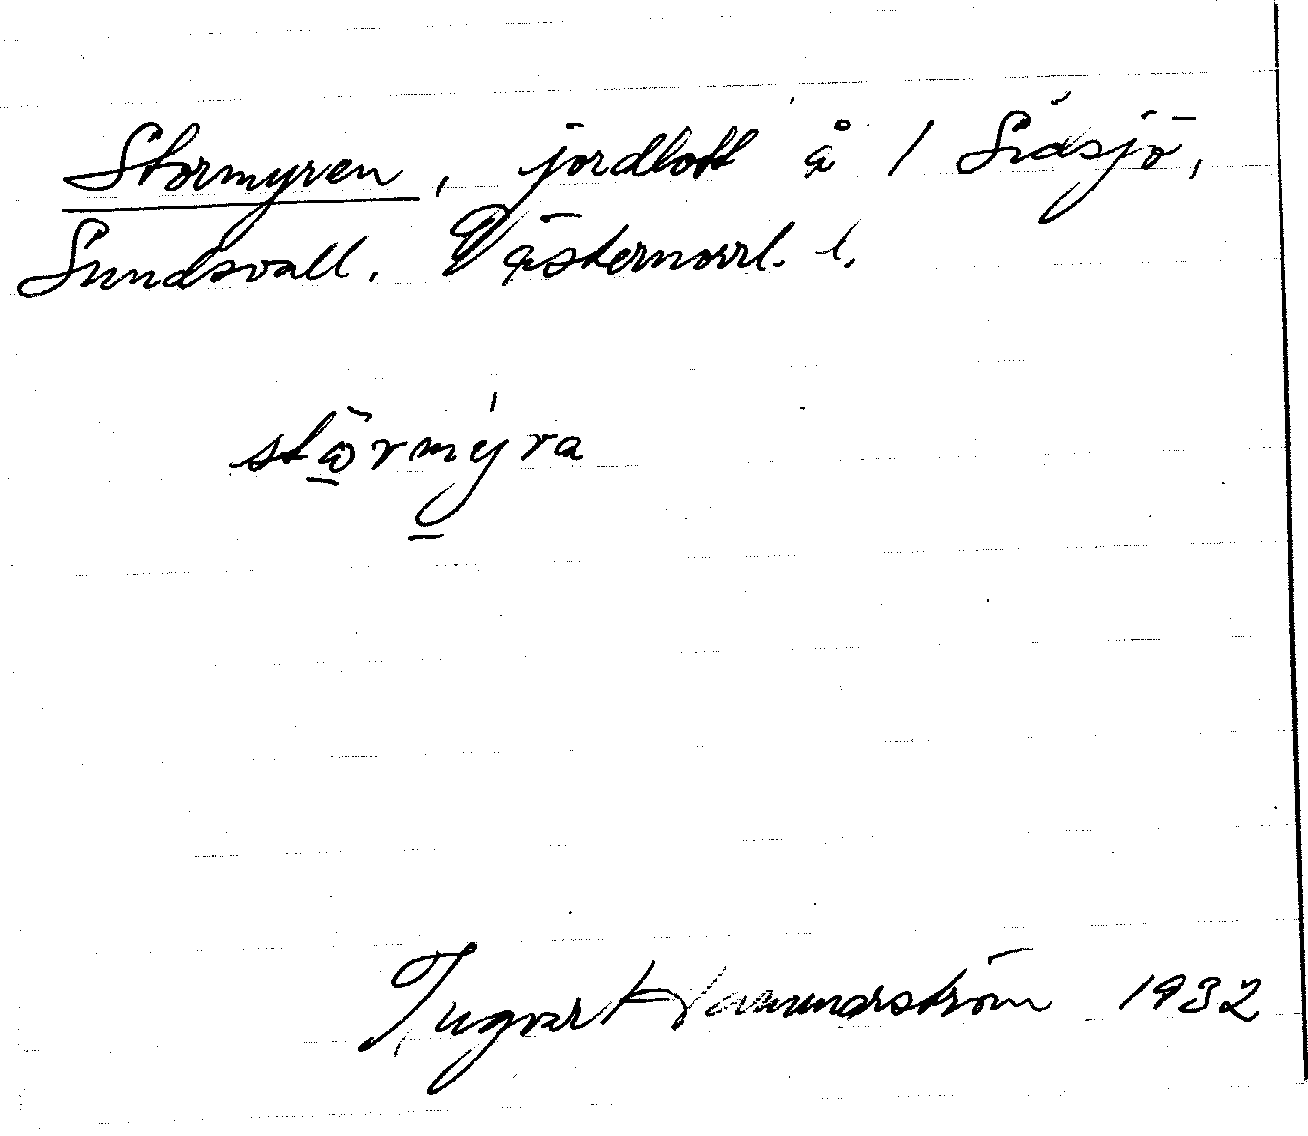 Stormyren, jordlott å 1 Sidsjö,
Sundsvall. Västernorrl. l.
stǫ̈rmy̱̍ra
Ingvar 1932